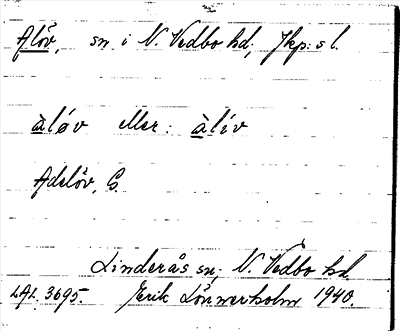 Alöv, sn i N. Vedbo hd, Jkp:s l.
àløv eller: àlív
Adelöv, G.
Linderås sn, N. Vedbo hd
LAL. 3695. Erik Lönnerholm 1940.